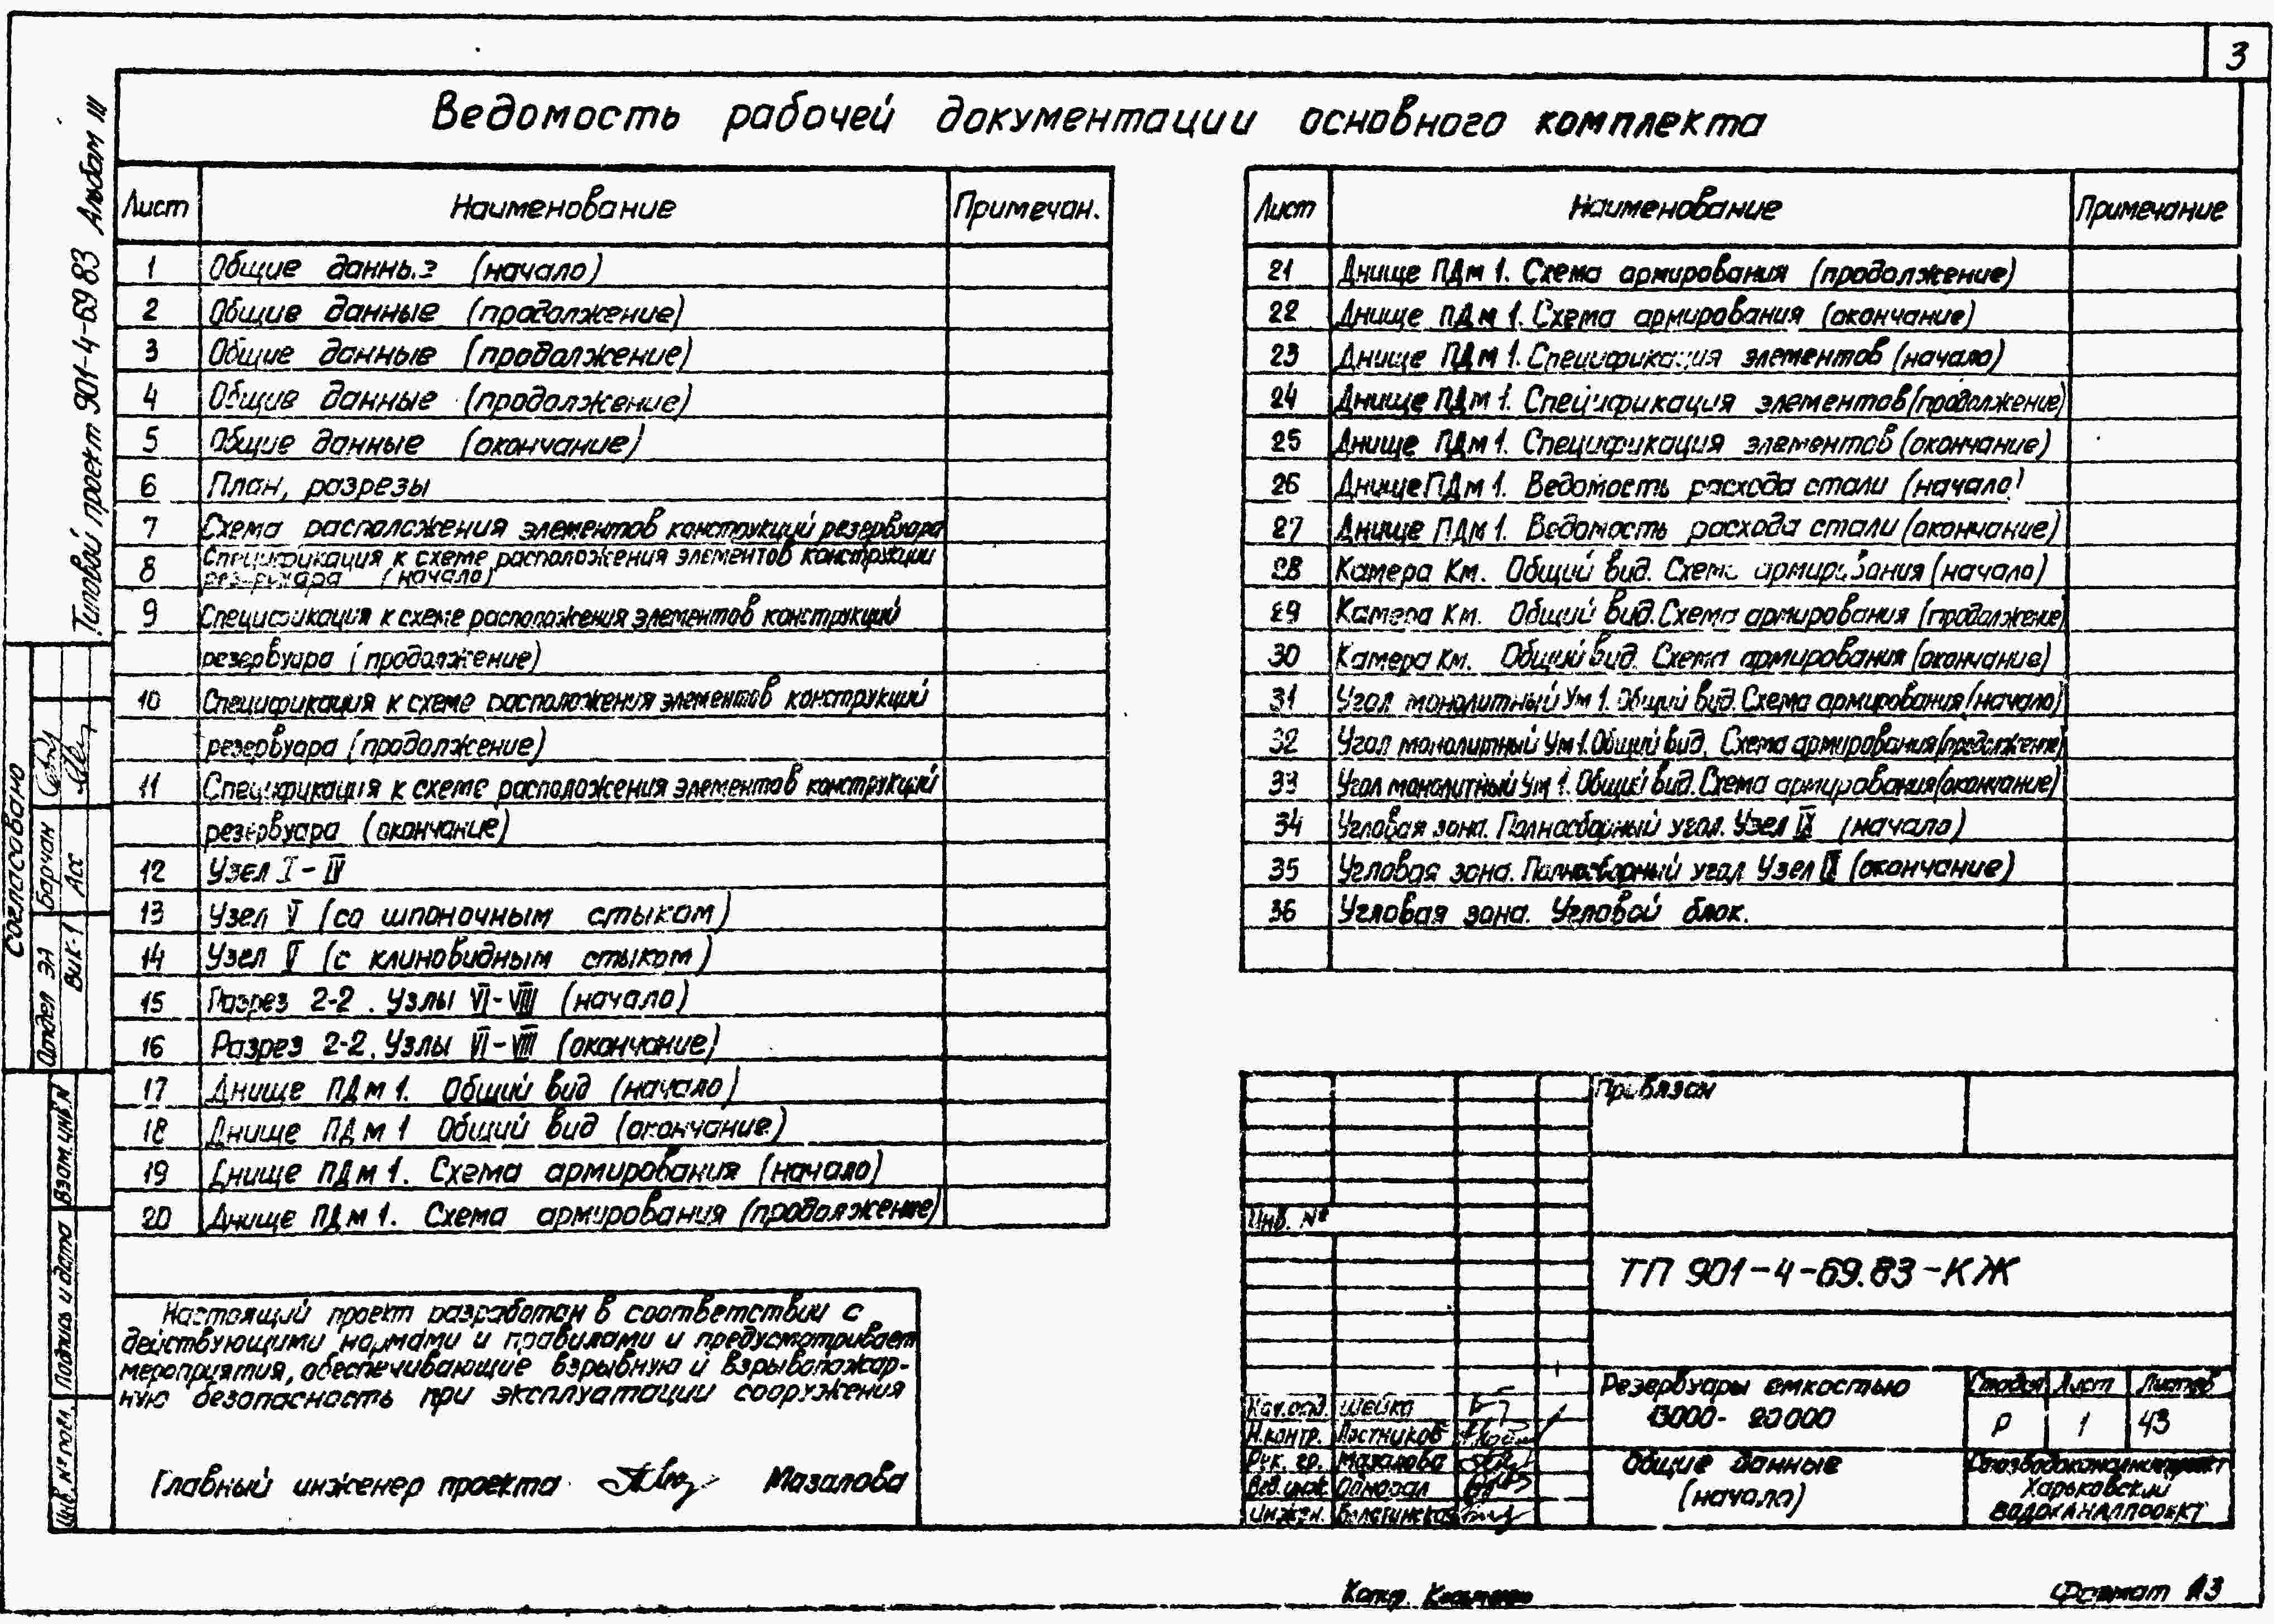 3
Ведомость рабочей документации основного комплекта
Типовой проект 901-4-69 83 Альбом III
Лист Наименование Примечан.
1 Общие (начало)
2 Общие данные (продолжение)
3 Общие данные (продолжение)
4 Общие данные (продолжение)
5 Общие данные (окончание)
6 План, разрезы
7 Схема расположения элементов конструкций резервуара
8 Спецификация к схеме расположения элементов конструкции
резервуара (начало)
9 Спецификация к схеме расположения элементов конструкций
резервуара (продолжение)
10 Спецификация к схеме расположения элементов конструкций
резервуара (продолжение)
11 Спецификация к схеме расположения элементов конструкций
резервуара (окончание)
12 Узел I - IV
13 Узел V (со шпоночным стыком)
14 Узел V (с клиновидным стыком)
15 Разрез 2-2. Узлы VI-VIII (начало)
16 Разрез 2-2. Узлы VI-VIII (окончание)
17 Днище ПДм 1. Общий вид (начало)
18 Днище ПДм 1 Общий вид (окончание)
19 Днище ПДм 1. Схема армирования (начало)
20 Днище ПДм 1. Схема армирования (продолжение)
Лист Наименование Примечание
21 Днище ПДм 1. Схема армирования (продолжение)
22 Днище ПДм 1. Схема армирования (окончание)
23 Днище ПДм 1. Спецификация элементов (начало)
24 Днище ПДм 1. Спецификация элементов (продолжение)
25 Днище ПДм 1. Спецификация элементов (окончание)
26 Днище ПДм 1. Ведомость расхода стали (начало)
27 Днище ПДм 1. Ведомость расхода стали (окончание)
28 Камера Км. Общий вид. Схема армирования (начало)
29 Камера Км. Общий вид. Схема армирования (продолжение)
30 Камера Км. Общий вид. Схема армирования (окончание)
31 Угол монолитный Ум 1. Общий вид. Схема армирования (начало)
32 Угол монолитный Ум 1. Общий вид. Схема армирования (продолжение)
33 Угол монолитный Ум 1. Общий вид. Схема армирования (окончание)
34 Угловая зона. Полносборный угол. Узел IX (начало)
35 Угловая зона. Полносборный угол. Узел IX (окончание)
36 Угловая зона. Угловой блок.
Согласовано
Отдел ЭЛ Барчан
ВиК-1 Асс
Взам. инв. №
Подпись и дата
Инв. № подл.
Настоящий проект разработан в соответствии с
действующими нормами и правилами и предусматривает
мероприятия, обеспечивающие взрывную и взрывопожар-
ную безопасность при эксплуатации сооружения
Главный инженер проекта Мазалова
Привязан
Инв. №
ТП 901-4-69.83-КЖ
Нач. отд. Шейко
Н. контр. Постников
Рук. гр. Мазалова
Вед. инж.
Инжен.
Резервуары емкостью
13000- 20000
Стадия Лист Листов
Р 1 43
Общие данные
(начало)
Союзводоканалниипроект
Харьковский
ВОДОКАНАЛПРОЕКТ
Копир.
Формат А3